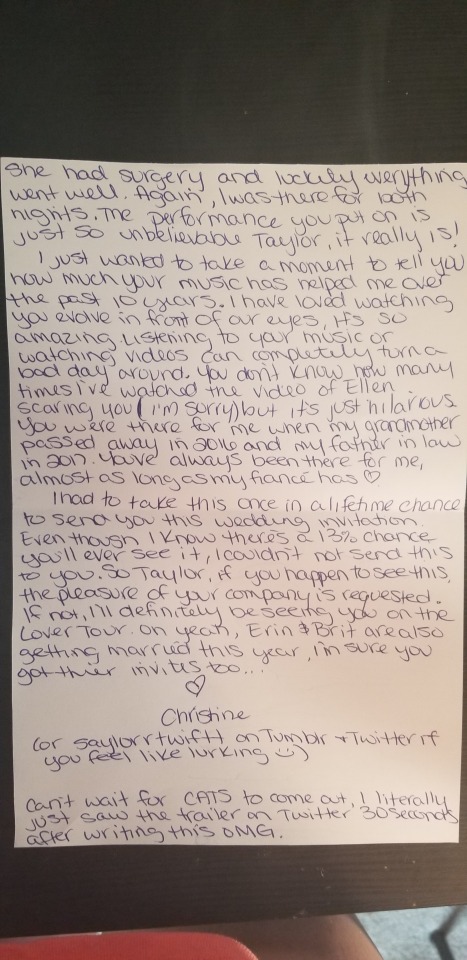 She had surgery and luckily everything
went well. Again, I was there for both
nights. The performance you put on is
just so unbelievable Taylor, it really is!
I just wanted to take a moment to tell you
how much your music has helped me over
the past 10 years. I have loved watching
you evolve in front of our eyes, it's so
amazing. Listening to your music or
watching videos can completely turn a
bad day around. You don't know how many
times I've watched the video of Ellen
scaring you (i'm sorry) but it's just hilarious.
You were there for me when my grandmother
passed away in 2016 and my father in law
in 2017. You've always been there for me,
almost as long as my fiancé has ♡
I had to take this once in a lifetime chance
to send you this wedding invitation.
Even though I know there's a 13% chance
you'll ever see it, I couldn't not send this
to you. So Taylor, if you happen to see this,
the pleasure of your company is requested.
If not, I'll definitely be seeing you on the
Lover Tour. Oh yeah, Erin & Brit are also
getting married this year, i'm sure you
got thier invites too...
♡
Christine
(or saylorrtwiftt on Tumblr + Twitter if
you feel like lurking :))
Can't wait for CATS to come out, I literally
just saw the trailer on Twitter 30 seconds
after writing this OMG.